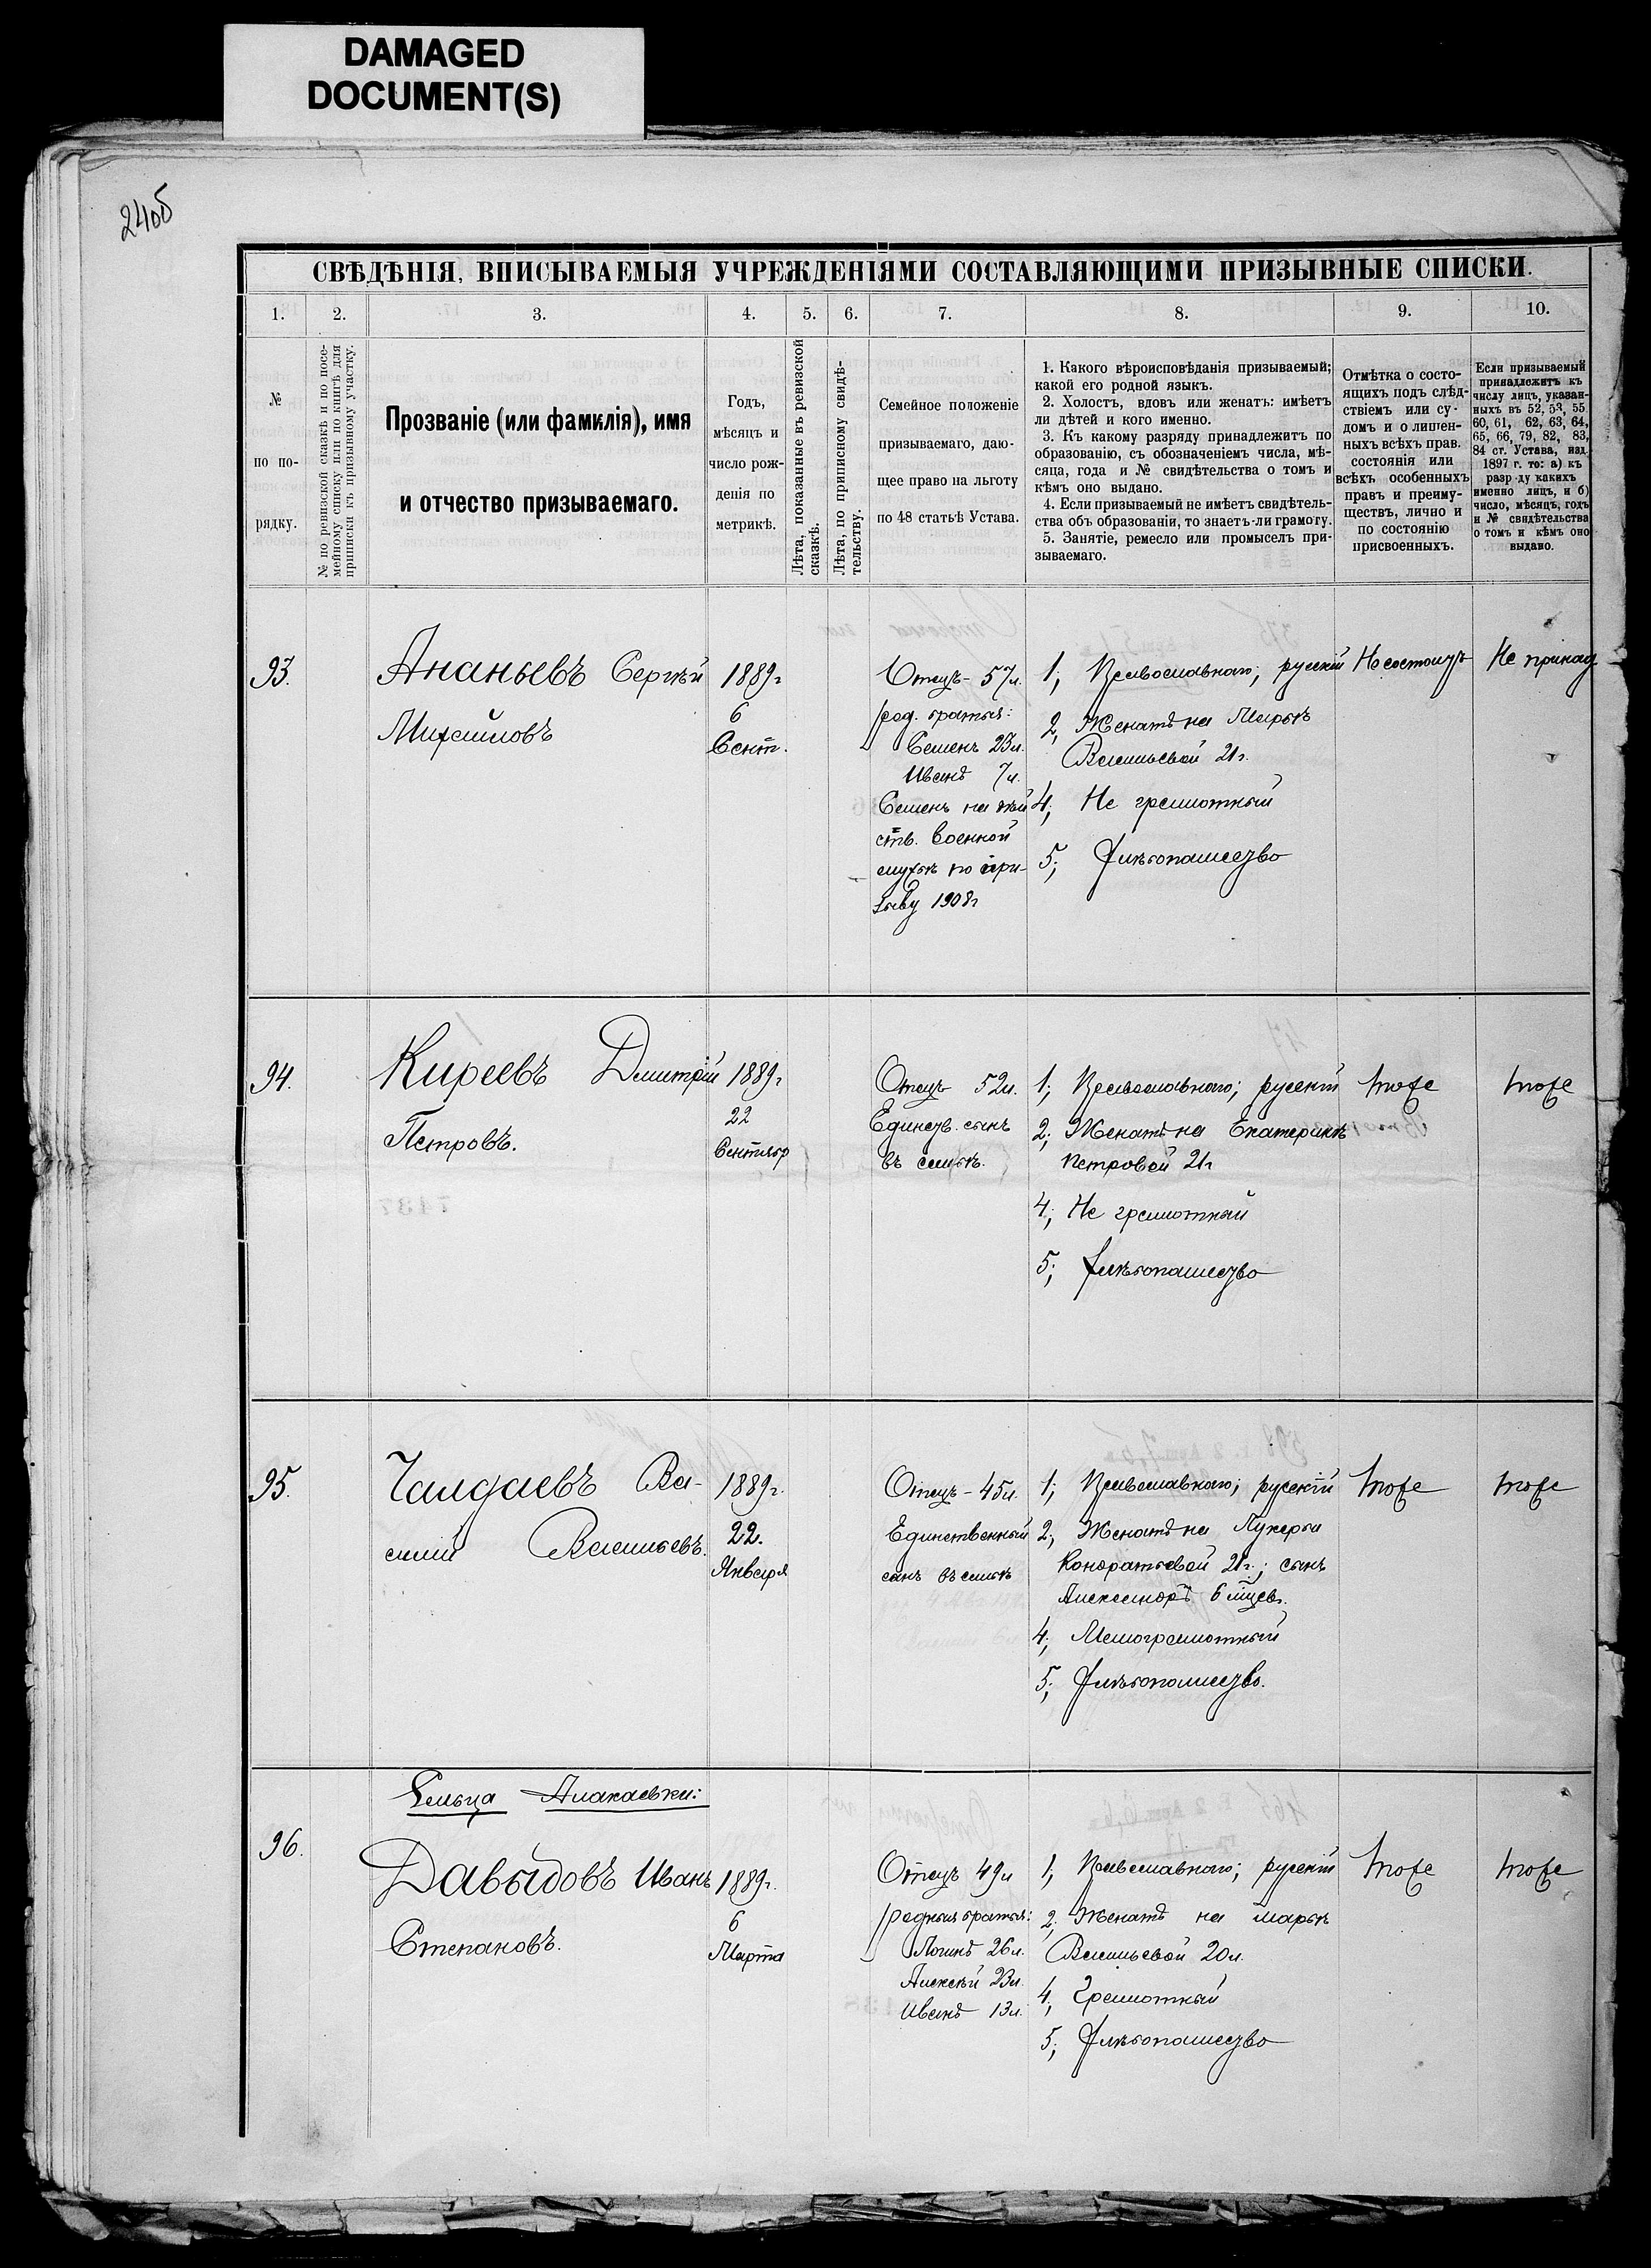 DAMAGED
DOCUMENT(S)
2405
СВѢДѢНІЯ, ВПИСЫВАЕМЫЯ УЧРЕЖДЕНІЯМИ СОСТАВЛЯЮЩИМИ ПРИЗЫВНЫЕ СПИСКИ.
1. 2. 3. 4. 5. 6. 7. 8. 9. 10.
№
по по-
рядку.
№ по ревизской сказкѣ и по посе-
мейному списку или по книгѣ для
приписки къ призывному участку.
Прозваніе (или фамилія), имя
и отчество призываемаго.
Годъ,
мѣсяцъ и
число рож-
денія по
метрикѣ.
Лѣта, показанные въ ревизской
сказкѣ.
Лѣта, по приписному свидѣ-
тельству.
Семейное положеніе
призываемаго, даю-
щее право на льготу
по 48 статьѣ Устава.
1. Какого вѣроисповѣданія призываемый;
какой его родной языкъ.
2. Холостъ, вдовъ или женатъ: имѣетъ
ли дѣтей и кого именно.
3. Къ какому разряду принадлежитъ по
образованію, съ обозначеніемъ числа, мѣ-
сяца, года и № свидѣтельства о томъ и
кѣмъ оно выдано.
4. Если призываемый не имѣетъ свидѣтель-
ства объ образованіи, то знаетъ-ли грамоту.
5. Занятіе, ремесло или промыселъ при-
зываемаго.
Отмѣтка о состо-
ящихъ подъ слѣд-
ствіемъ или су-
домъ и о лишен-
ныхъ всѣхъ прав.
состоянія или
всѣхъ особенныхъ
правъ и преиму-
ществъ, лично и
по состоянію
присвоенныхъ.
Если призываемый
принадлежитъ къ
числу лицъ, указан-
ныхъ въ 52, 53, 55
60, 61, 62, 63, 64,
65, 66, 79, 82, 83,
84 ст. Устава, изд.
1897 г. то: а) къ
разр ду какихъ
именно лицъ, и б)
число, мѣсяцъ, годъ
и № свидѣтельства
о томъ и кѣмъ оно
выдано.
93.
Ананьевъ Сергѣй
Михайловъ
1889г
6
Сент.
Отецъ - 57л.
род. братья:
Семенъ 23л.
Иванъ 7л.
Семенъ на дѣй
ств. военной
службѣ по при-
зыву 1908г
1; Православнаго; русскій
2; Женатъ на Марьѣ
Васильевой 21г.
4; Не грамотный
5; Хлѣбопашество
Не состоитъ
Не принад
94.
Киреевъ Дмитрій
Петровъ.
1889г
22
Сентябр
Отецъ 52л.
Единств. сынъ
въ семьѣ.
1; Православнаго; русскій
2; Женатъ на Екатеринѣ
Петровой 21г
4; Не грамотный
5; Хлѣбопашество
тоже
тоже
95.
Чалдаевъ Ва-
силій Васильевъ.
1889г.
22.
Января
Отецъ - 45л.
Единственный
сынъ въ семьѣ
1; Православнаго; русскій
2; Женатъ на Лукерьи
Кондратьевой 21г.; сынъ
Александръ 6 мѣсяц.
4; Малограмотный
5; Хлѣбопашество.
тоже
тоже
Сельца Алакаевки:
96.
Давыдовъ Иванъ
Степановъ.
1889г.
6
Марта
Отецъ 49л
родные братья:
Логинъ 26л.
Алексѣй 23л.
Иванъ 13л.
1; Православнаго; русскій
2; Женатъ на Марьѣ
Васильевой 20л.
4; Грамотный
5; Хлѣбопашество
тоже
тоже